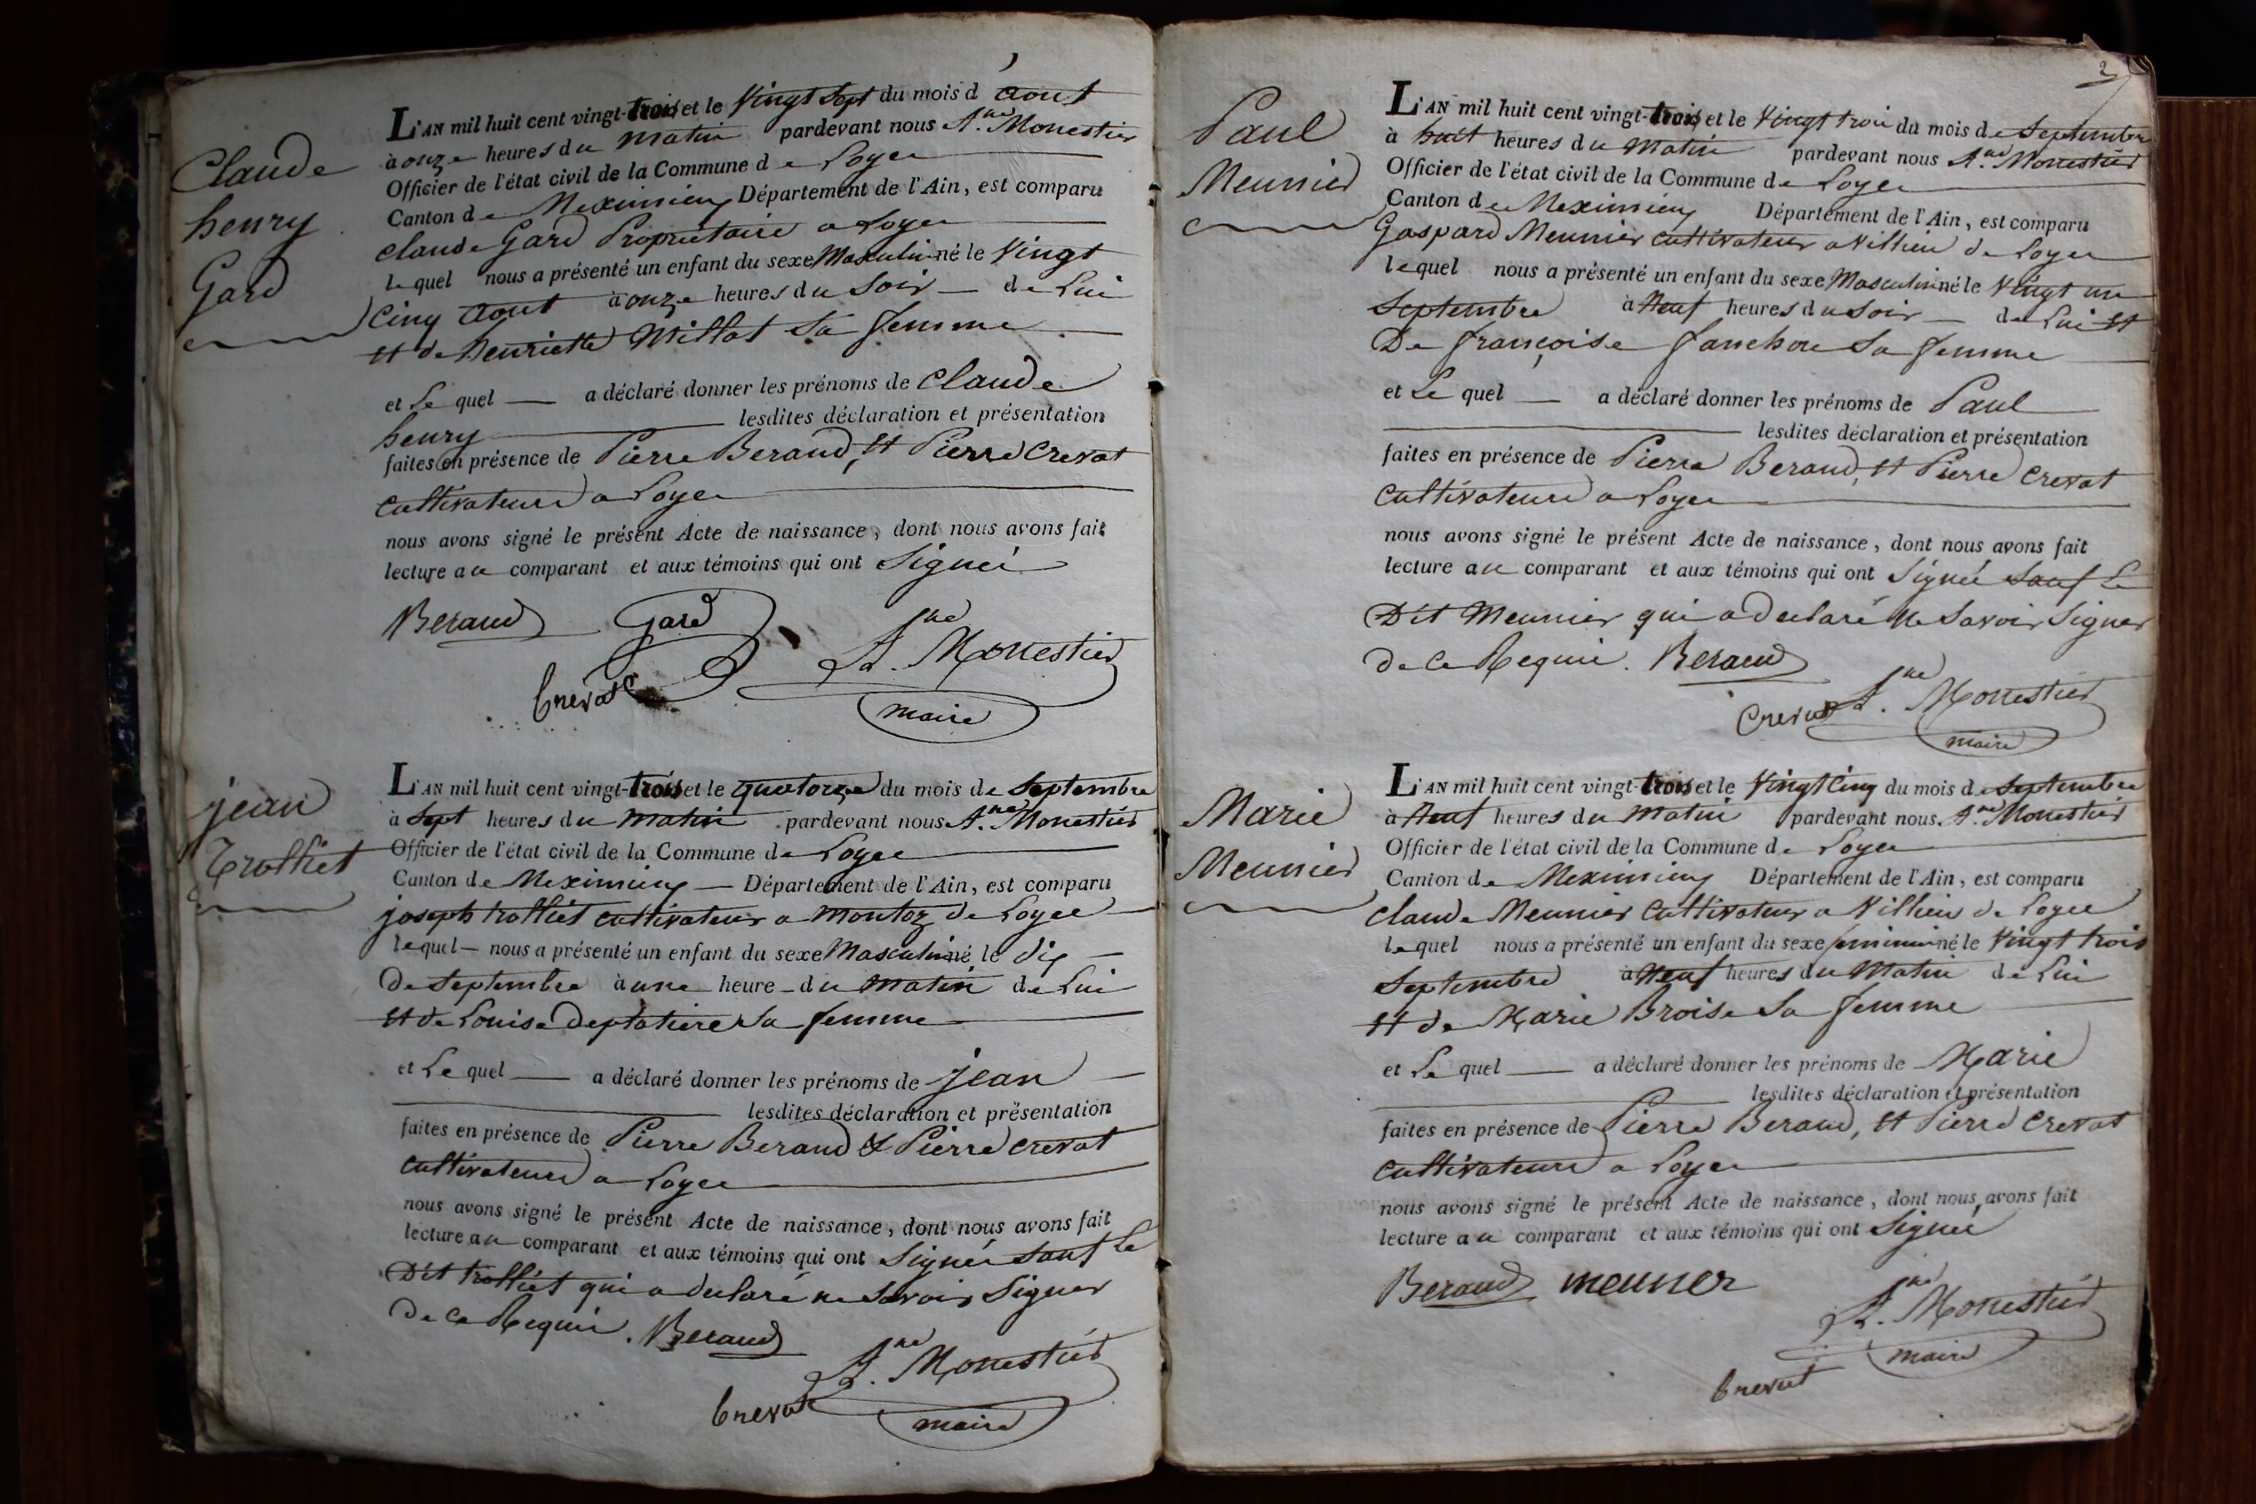 Claude
henry
Gard
L'AN mil huit cent vingt-trois et le Vingt Sept du mois d'aout
à onze heures du matin pardevant nous A.ne Monestier
Officier de l'état civil de la Commune de Loyes
Canton de Meximieux Département de l'Ain, est comparu
Claude Gard Propriétaire a Loyes
lequel nous a présenté un enfant du sexe Masculin né le Vingt
cinq aout à onze heures du Soir de Lui
et de henriette Millat Sa femme
et Le quel a déclaré donner les prénoms de Claude
henry lesdites déclaration et présentation
faites en présence de Pierre Beraud, et Pierre Crevat
Cultivateurs a Loyes
nous avons signé le présent Acte de naissance, dont nous avons fait
lecture au comparant et aux témoins qui ont Signé
Beraud Gard
A.ne Monestier
Crevat
maire
jean
Trolliet
L'AN mil huit cent vingt-trois et le quatorze du mois de Septembre
à Sept heures du matin pardevant nous A.ne Monestier
Officier de l'état civil de la Commune de Loyes
Canton de Meximieux Département de l'Ain, est comparu
joseph trolliet cultivateur a montoz de Loyes
lequel nous a présenté un enfant du sexe Masculin né le dix
De Septembre à une heure du matin de Lui
et de Louise Deplatiere Sa femme
et Le quel a déclaré donner les prénoms de jean
lesdites déclaration et présentation
faites en présence de Pierre Beraud & Pierre Crevat
Cultivateurs a Loyes
nous avons signé le présent Acte de naissance, dont nous avons fait
lecture au comparant et aux témoins qui ont Signé Sauf Le
Dit trolliet qui a declaré ne Savoir Signer
de ce Requi. Beraud
A.ne Monestier
Crevat
maire
2
Paul
Meunier
L'AN mil huit cent vingt-trois et le Vingt trois du mois de Septembre
à huit heures du matin pardevant nous A.ne Monestier
Officier de l'état civil de la Commune de Loyes
Canton de Meximieux Département de l'Ain, est comparu
Gaspard Meunier cultivateur a Villieu de Loyes
lequel nous a présenté un enfant du sexe Masculin né le Vingt un
Septembre à Neuf heures du Soir de Lui et
De françoise fanchon Sa femme
et Le quel a déclaré donner les prénoms de Paul
lesdites déclaration et présentation
faites en présence de Pierre Beraud, et Pierre Crevat
Cultivateurs a Loyes
nous avons signé le présent Acte de naissance, dont nous avons fait
lecture au comparant et aux témoins qui ont Signé Sauf Le
Dit Meunier qui a declaré Ne Savoir Signer
de ce Requi. Beraud
A.ne Monestier
Crevat
maire
Marie
Meunier
L'AN mil huit cent vingt-trois et le Vingt Cinq du mois de Septembre
à Neuf heures du matin pardevant nous A.ne Monestier
Officier de l'état civil de la Commune de Loyes
Canton de Meximieux Département de l'Ain, est comparu
Claude Meunier Cultivateur a Villieu de Loyes
lequel nous a présenté un enfant du sexe feminin né le Vingt trois
Septembre à Neuf heures du Matin de Lui
et de Marie Broise Sa femme
et Le quel a déclaré donner les prénoms de Marie
lesdites déclaration et présentation
faites en présence de Pierre Beraud, et Pierre Crevat
Cultivateurs a Loyes
nous avons signé le présent Acte de naissance, dont nous avons fait
lecture au comparant et aux témoins qui ont Signé
Beraud meunier
A.ne Monestier
maire
Crevat